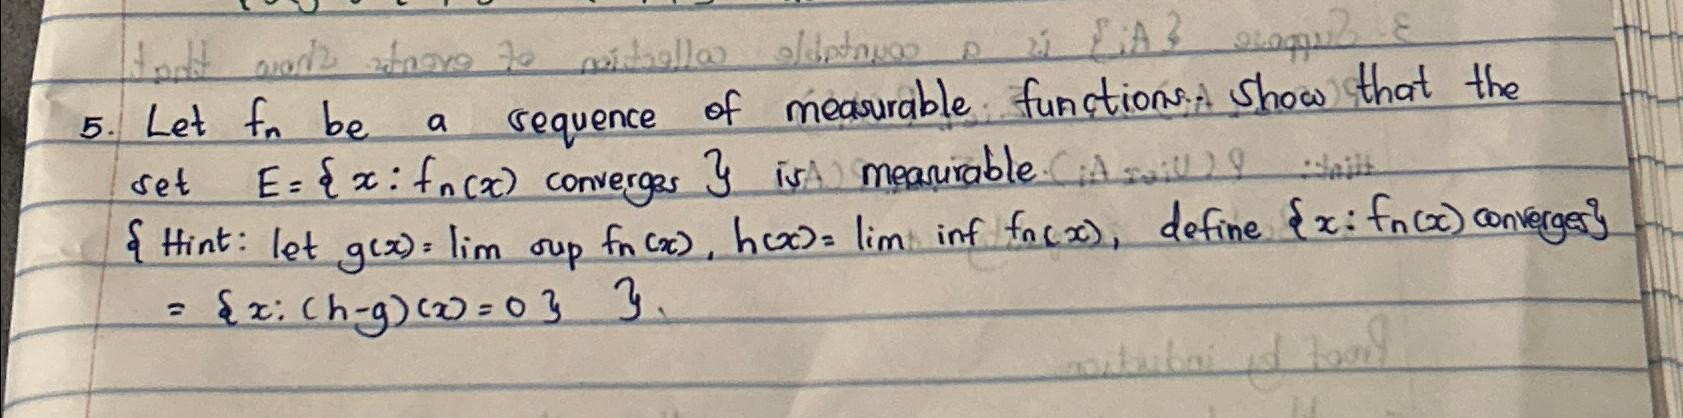 5. Let fn be a sequence of measurable functions. Show that the
set E = { x : fn(x) converges } is measurable.
{ Hint: let g(x) = lim sup fn(x), h(x) = lim inf fn(x), define {x : fn(x) converges}
= {x : (h-g)(x) = 0 } }.